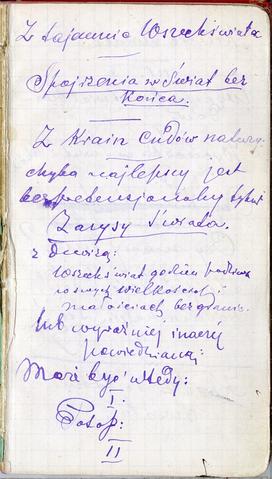 Z tajemnic Wszechświata
Spojrzenia w Świat bez
końca.
Z Krain Cudów natury
chyba najlepszy jest
bezpretensjonalny tytuł
Zarysy Świata.
z dewizą:
Wszechświat godzien podziwu
w swych wielkościach i
małościach bez granic.
lub wyraźniej inaczej
powiedzianej:
Może być wtedy:
I.
Potop:
II